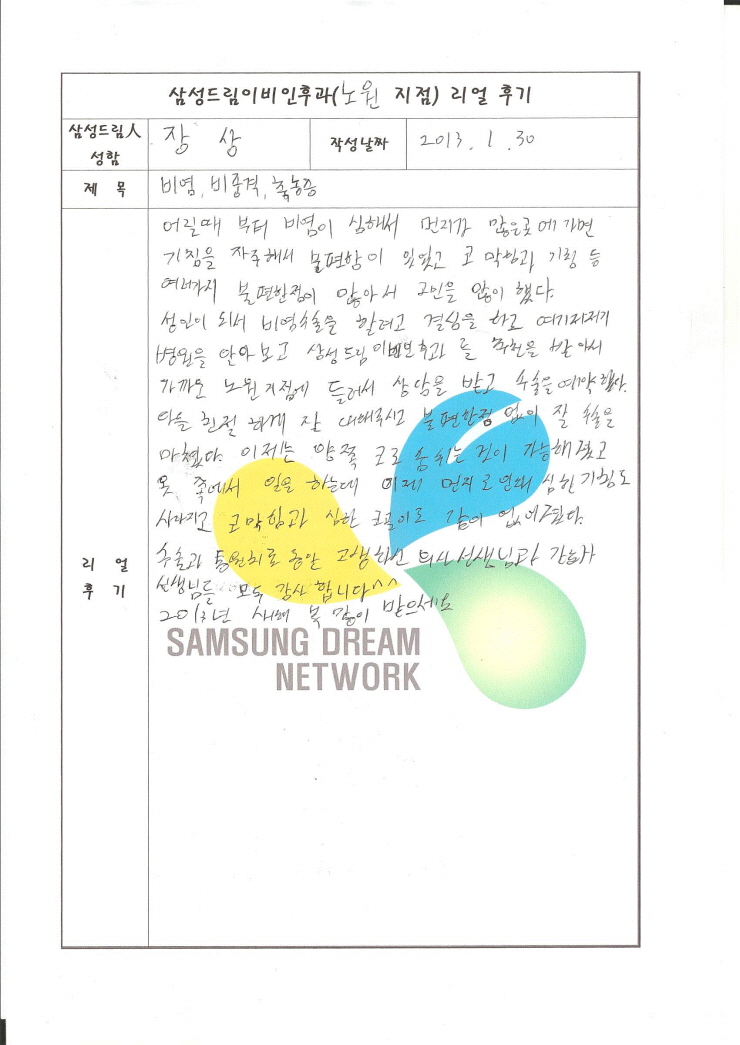 삼성드림이비인후과(노원 지점) 리얼 후기
삼성드림人 성함
장 상
작성날짜
2013. 1. 30
제 목
비염, 비중격, 축농증
리 얼 후 기
어릴때 부터 비염이 심해서 먼지가 많은곳에 가면
기침을 자주해서 불편함이 있었고 코 막힘과 기침 등
여러가지 불편한점이 많아서 고민을 많이 했다.
성인이 되서 비염수술을 할려고 결심을 하고 여기저저기
병원을 알아보고 삼성드림이비인후과 를 추천을 받아서
가까운 노원지점에 들러서 상담을 받고 수술을 예약했다.
다들 친절 하게 잘 대해주시고 불편한점 없이 잘 수술을
마쳤다. 이제는 양쪽 코로 숨쉬는 것이 가능해졌고
옷 쪽에서 일을 하는데 이제 먼지로 인해 심한 기침도
사라지고 코막힘과 심한 코골이도 같이 없어졌다.
수술과 통원치료 동안 고생하신 의사선생님과 간호사
선생님들 모두 감사 합니다^^
2013년 새해 복 많이 받으세요
SAMSUNG DREAM
NETWORK